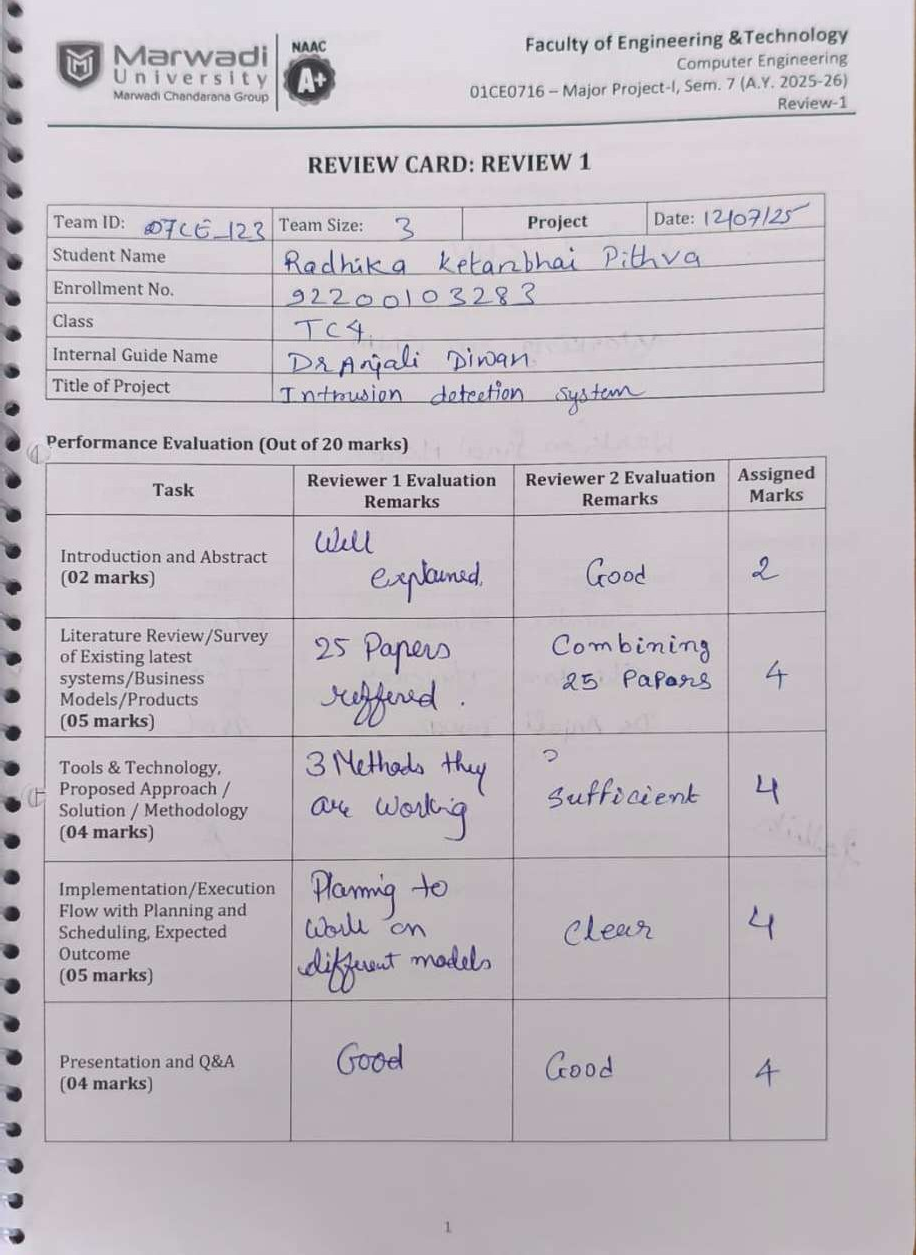 Marwadi
University
Marwadi Chandarana Group
NAAC
A+
Faculty of Engineering &Technology
Computer Engineering
01CE0716 – Major Project-I, Sem. 7 (A.Y. 2025-26)
Review-1
REVIEW CARD: REVIEW 1
Team ID: 07CE_123 Team Size: 3 Project Date: 12/07/25
Student Name Radhika Ketanbhai Pithva
Enrollment No. 92200103283
Class TC4
Internal Guide Name Dr Anjali Diwan
Title of Project Intrusion detection system
Performance Evaluation (Out of 20 marks)
Task
Reviewer 1 Evaluation
Remarks
Reviewer 2 Evaluation
Remarks
Assigned
Marks
Introduction and Abstract
(02 marks)
Well
explained.
Good
2
Literature Review/Survey
of Existing latest
systems/Business
Models/Products
(05 marks)
25 Papers
reffered.
Combining
25 Papars
4
Tools & Technology,
Proposed Approach /
Solution / Methodology
(04 marks)
3 Methods they
are working
Sufficient
4
Implementation/Execution
Flow with Planning and
Scheduling, Expected
Outcome
(05 marks)
Planning to
work on
different models
Clear
4
Presentation and Q&A
(04 marks)
Good
Good
4
1